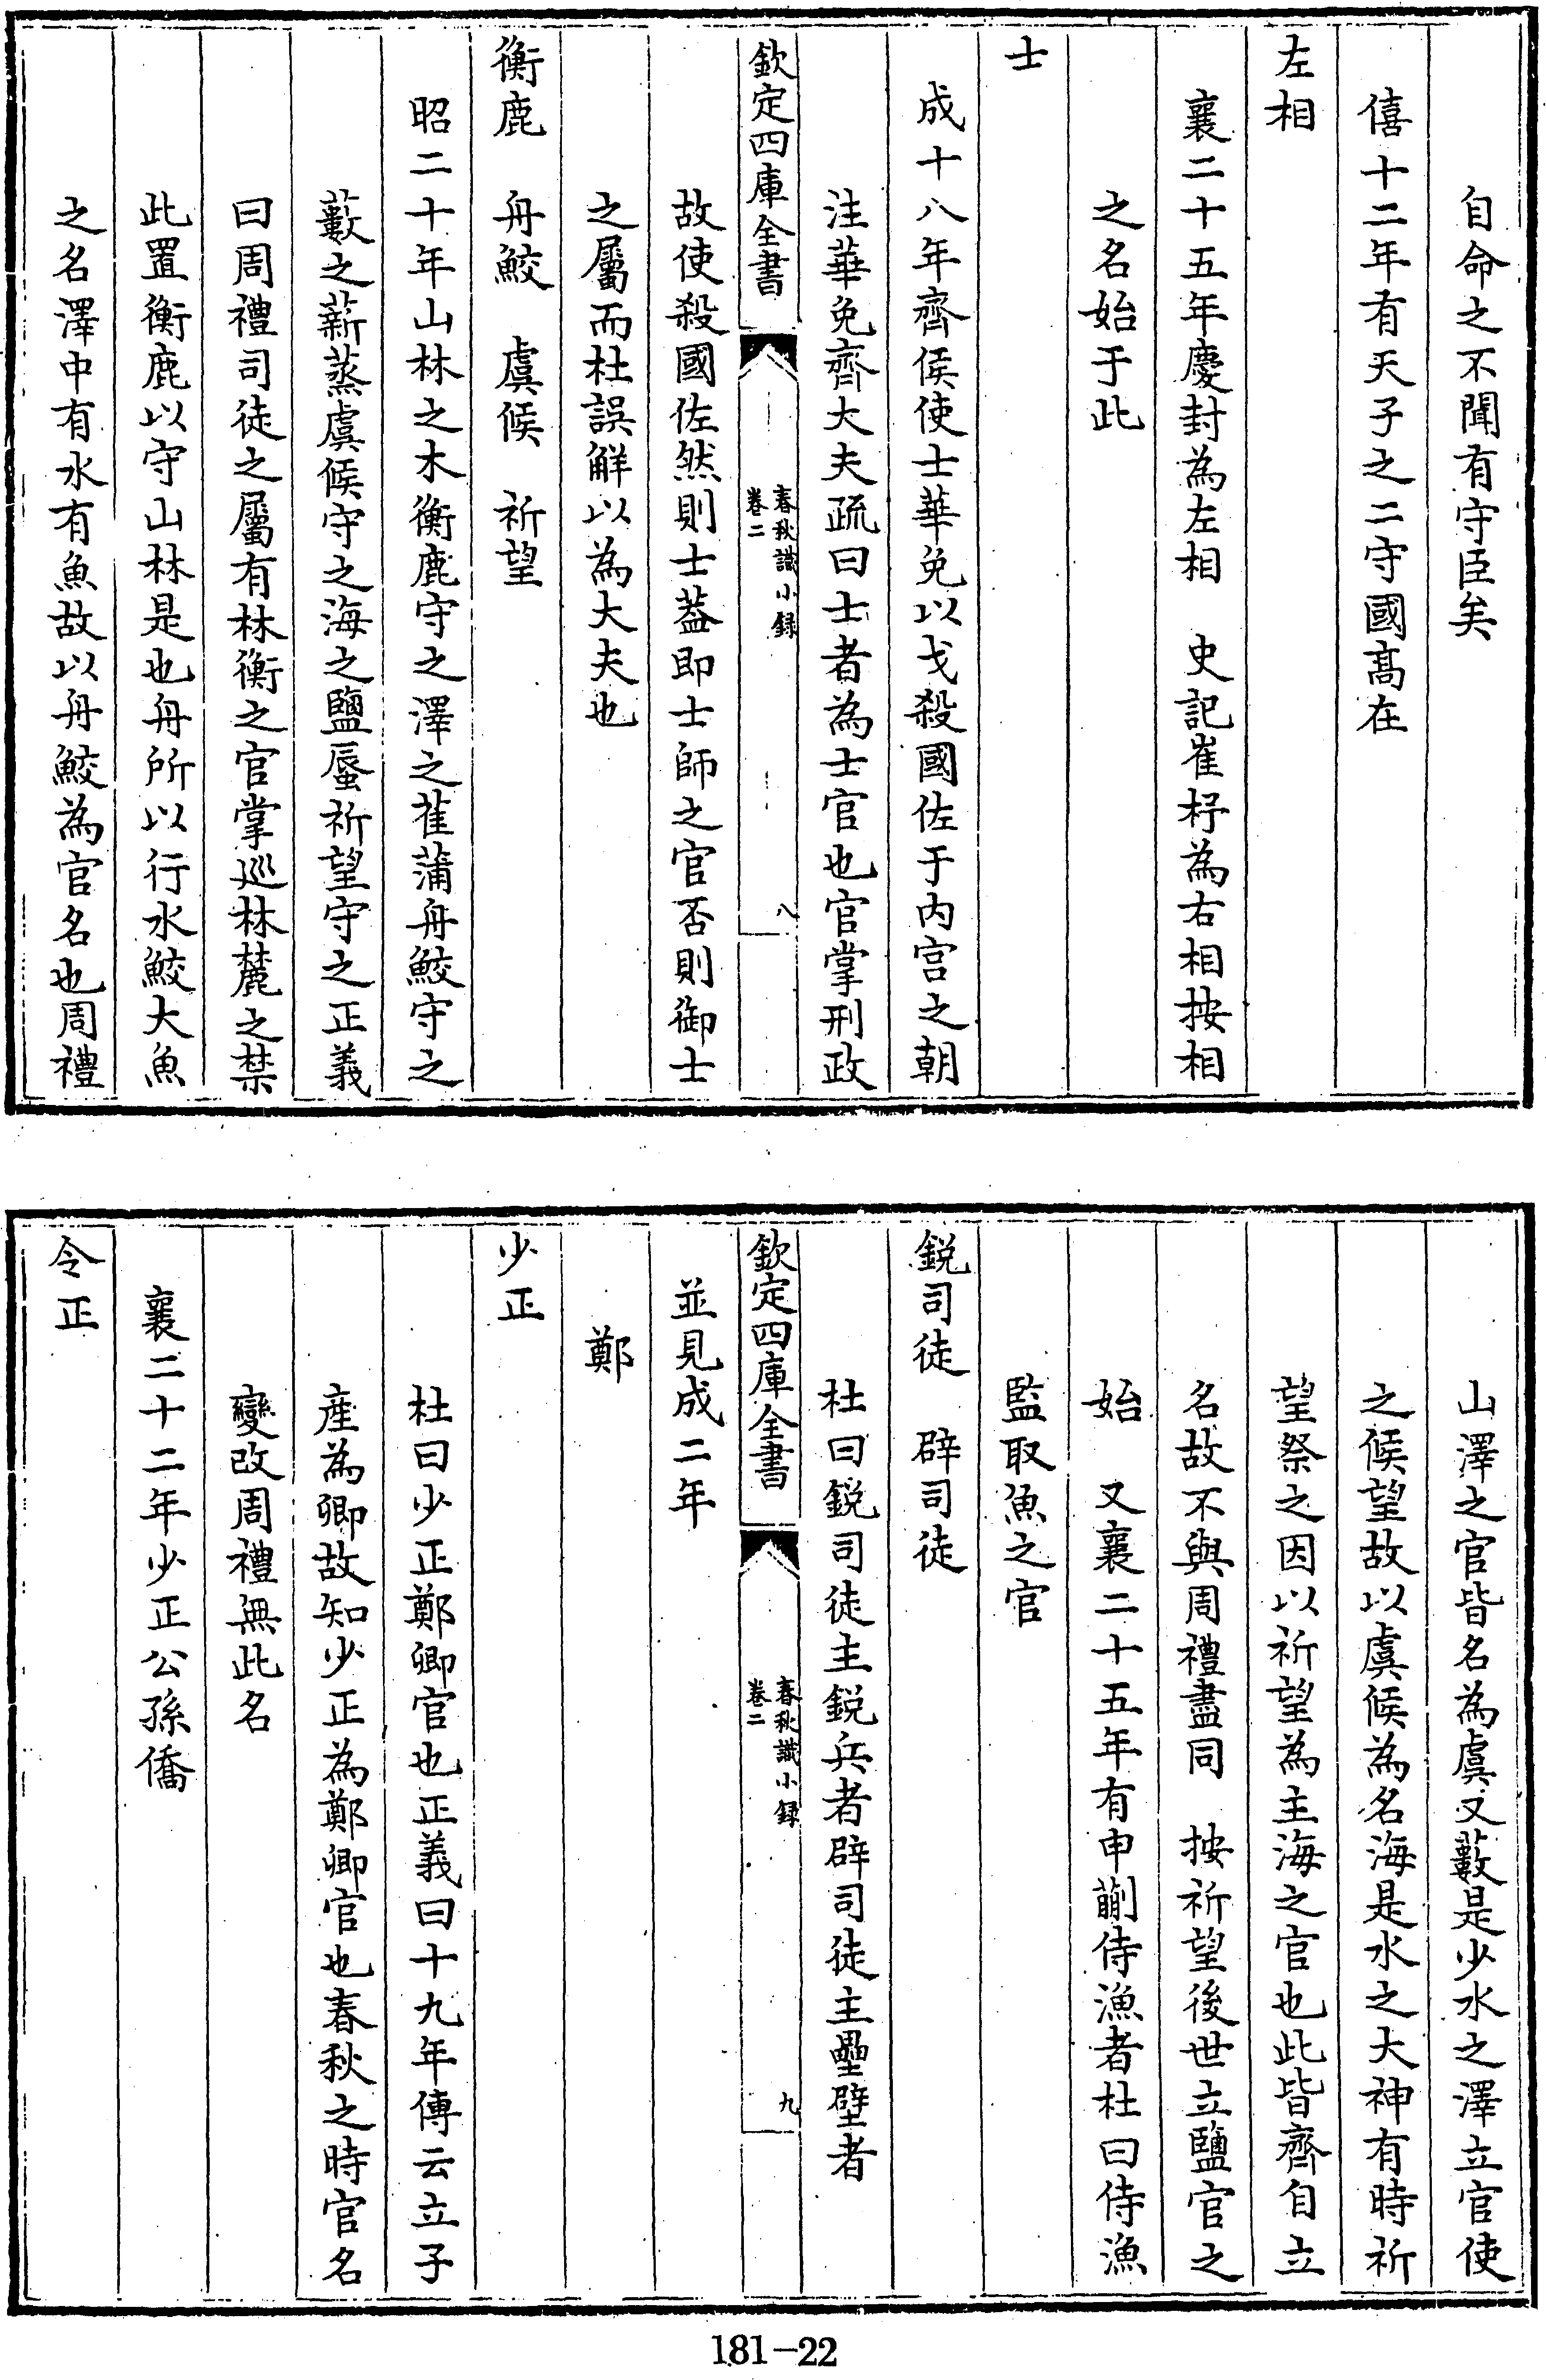 自命之不聞有守臣矣
僖十二年有天子之二守國髙在
左相
襄二十五年慶封為左相　史記崔杼為右相按相
之名始于此
士
成十八年齊侯使士華免以戈殺國佐于内宫之朝
注華免齊大夫疏曰士者為士官也官掌刑政
欽定四庫全書
春秋識小録
卷二
八
故使殺國佐然則士葢即士師之官否則御士
之屬而杜誤解以為大夫也
衡鹿　舟鮫　虞候　祈望
昭二十年山林之木衡鹿守之澤之萑蒲舟鮫守之
藪之薪蒸虞候守之海之鹽蜃祈望守之正義
曰周禮司徒之屬有林衡之官掌巡林麓之禁
此置衡鹿以守山林是也舟所以行水鮫大魚
之名澤中有水有魚故以舟鮫為官名也周禮
山澤之官皆名為虞又藪是少水之澤立官使
之候望故以虞候為名海是水之大神有時祈
望祭之因以祈望為主海之官也此皆齊自立
名故不與周禮盡同　按祈望後世立鹽官之
始　又襄二十五年有申蒯侍漁者杜曰侍漁
監取魚之官
鋭司徒　辟司徒
杜曰鋭司徒主鋭兵者辟司徒主壘壁者
欽定四庫全書
春秋識小録
卷二
九
並見成二年
鄭
少正
杜曰少正鄭卿官也正義曰十九年傳云立子
産為卿故知少正為鄭卿官也春秋之時官名
變改周禮無此名
襄二十二年少正公孫僑
令正
181-22